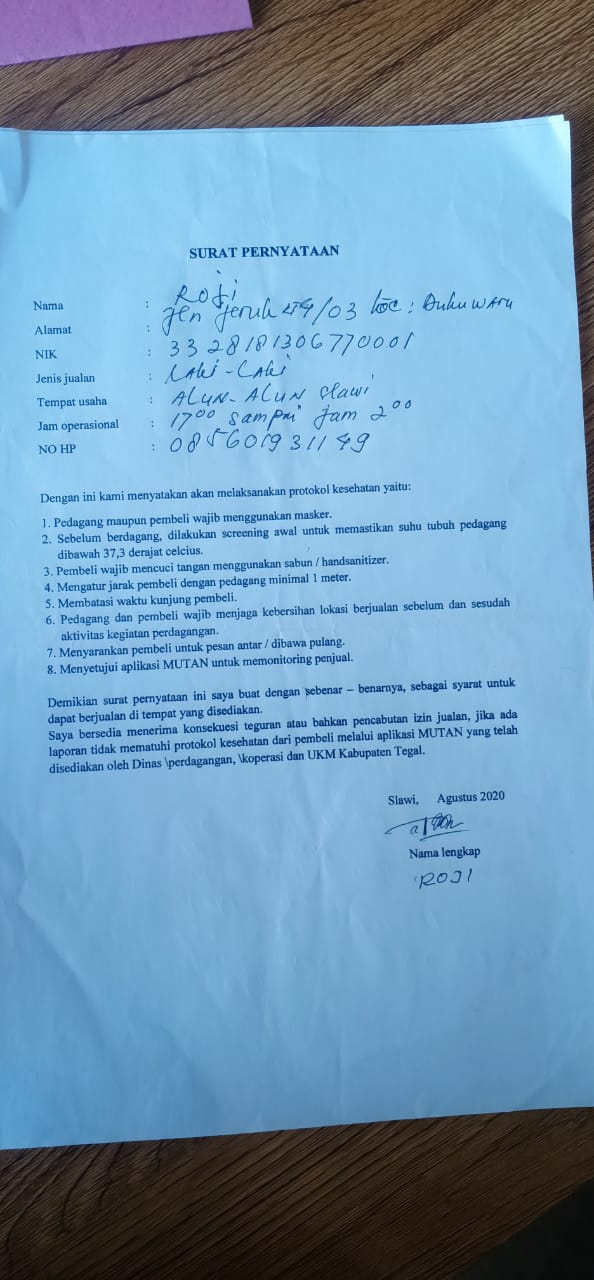 SURAT PERNYATAAN
Nama : Roji
Alamat : Jln Jeruk 04/03 kec : Dukuwaru
NIK : 3328181306770001
Jenis jualan : Laki-Laki
Tempat usaha : ALUN-ALUN Slawi
Jam operasional : 17⁰⁰ sampai jam 2⁰⁰
NO HP : 085601931149
Dengan ini kami menyatakan akan melaksanakan protokol kesehatan yaitu:
1. Pedagang maupun pembeli wajib menggunakan masker.
2. Sebelum berdagang, dilakukan screening awal untuk memastikan suhu tubuh pedagang
dibawah 37,3 derajat celcius.
3. Pembeli wajib mencuci tangan menggunakan sabun / handsanitizer.
4. Mengatur jarak pembeli dengan pedagang minimal 1 meter.
5. Membatasi waktu kunjung pembeli.
6. Pedagang dan pembeli wajib menjaga kebersihan lokasi berjualan sebelum dan sesudah
aktivitas kegiatan perdagangan.
7. Menyarankan pembeli untuk pesan antar / dibawa pulang.
8. Menyetujui aplikasi MUTAN untuk memonitoring penjual.
Demikian surat pernyataan ini saya buat dengan sebenar – benarnya, sebagai syarat untuk
dapat berjualan di tempat yang disediakan.
Saya bersedia menerima konsekuesi teguran atau bahkan pencabutan izin jualan, jika ada
laporan tidak mematuhi protokol kesehatan dari pembeli melalui aplikasi MUTAN yang telah
disediakan oleh Dinas \perdagangan, \koperasi dan UKM Kabupaten Tegal.
Slawi, Agustus 2020
Nama lengkap
ROJI